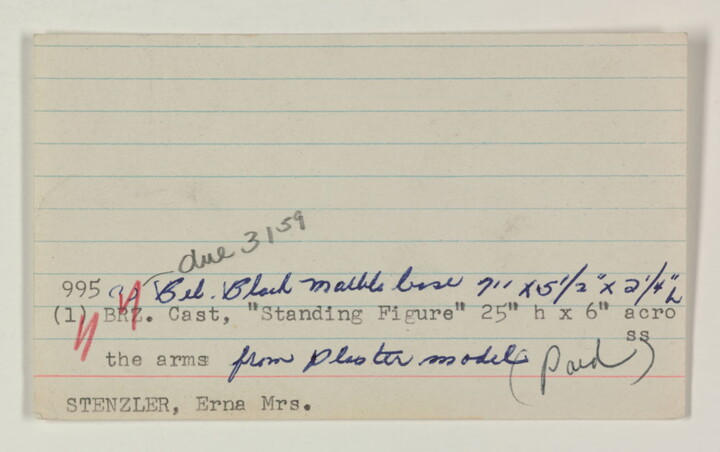 due 3 1 59
995 Bel. Black Marble base 7" x 5 1/2" x 2 1/4" h
(1) BRZ. Cast, "Standing Figure" 25" h x 6" acro
ss
the arms from plaster model (Paid)
STENZLER, Erna Mrs.